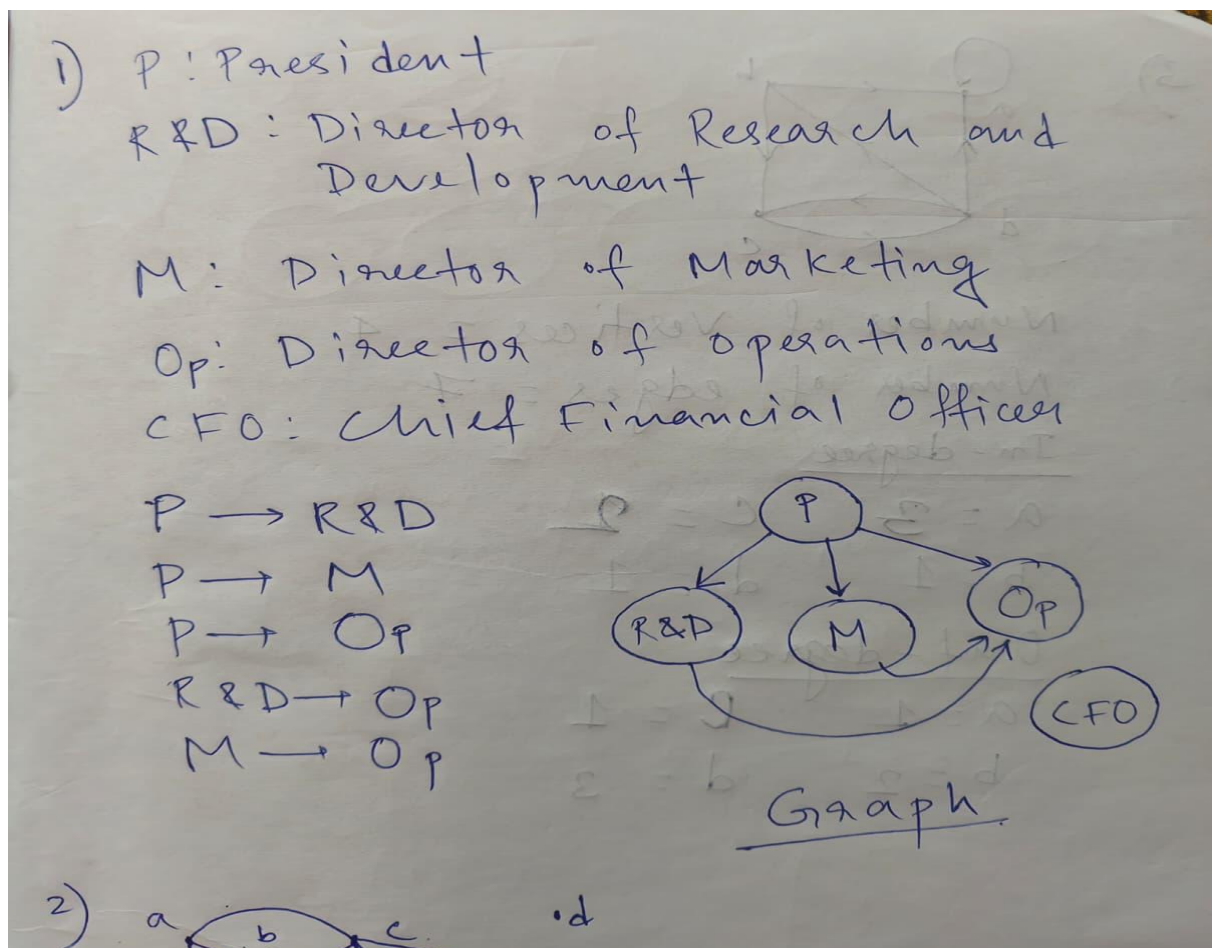 1) P: President
R&D: Director of Research and
Development
M: Director of Marketing
Op: Director of operations
CFO: Chief Financial Officer
P → R&D
P → M
P → Op
R&D → Op
M → Op
P
R&D
M
Op
CFO
Graph
2) a b c .d